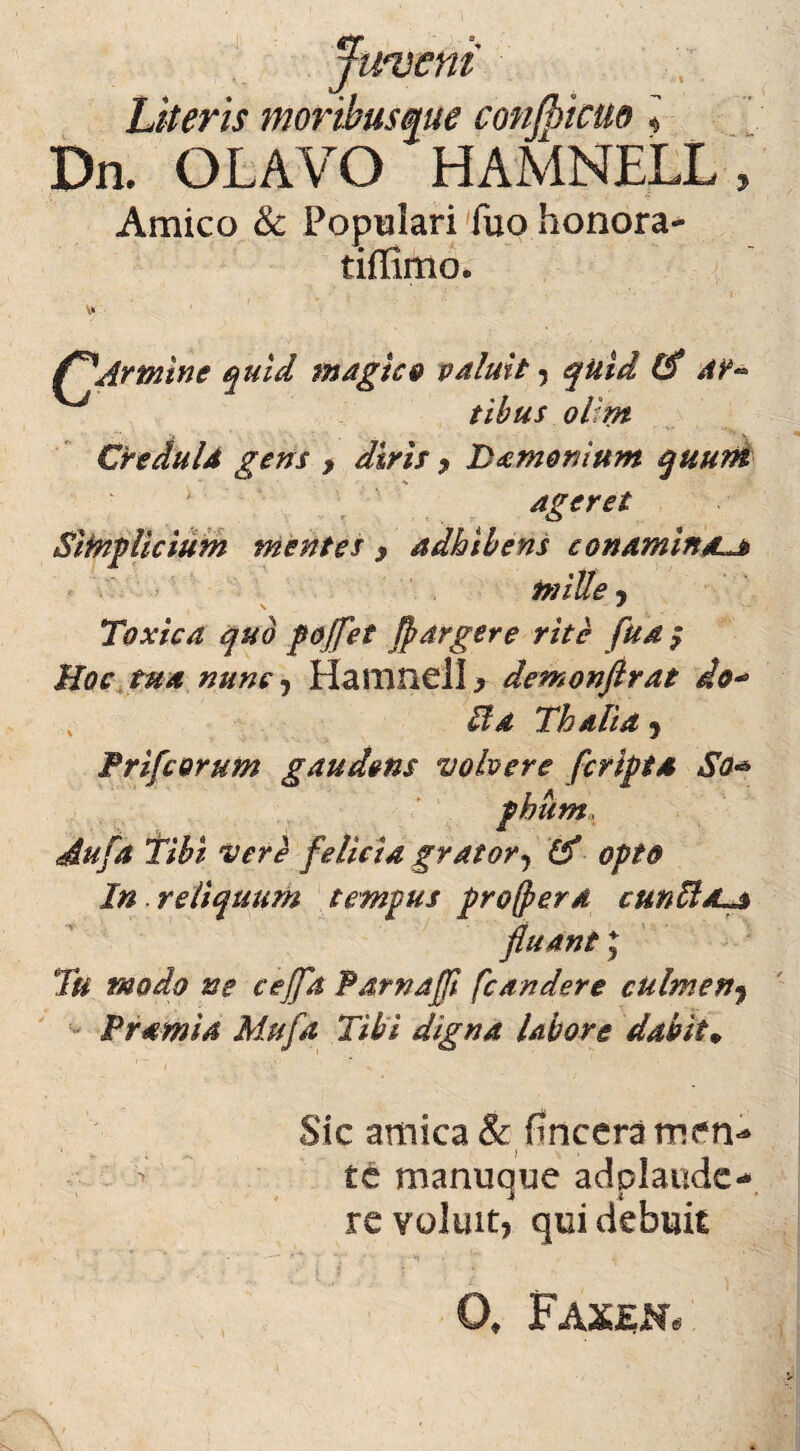 Juveni
Literis moribusque conſpicuo,
Dn. OLAVO HAMNELL,
Amico & Populari ſuo honora-
tiſſimo.
CArmine quid magico valuit, quid & ar-
tibus olim
Credula gens, diris, Dæmonium quum
ageret
Simplicium mentes, adhibens conamina
mille,
Toxica quò poſſet ſpargere ritè ſua;
Hoc tua nunc, Hamnell, demonſtrat do-
cta Thalia,
Priſcorum gaudens volvere ſcripta So-
phûm.
Auſa Tibi verè felicia grator, & opto
In reliquum tempus proſpera cuncta
fluant;
Tu modo ne ceſſa Parnaſſi ſcandere culmen,
Præmia Muſa Tibi digna labore dabit.
Sic amica & ſincera men-
te manuque adplaude-
re voluit, qui debuit
O. FAXEN.